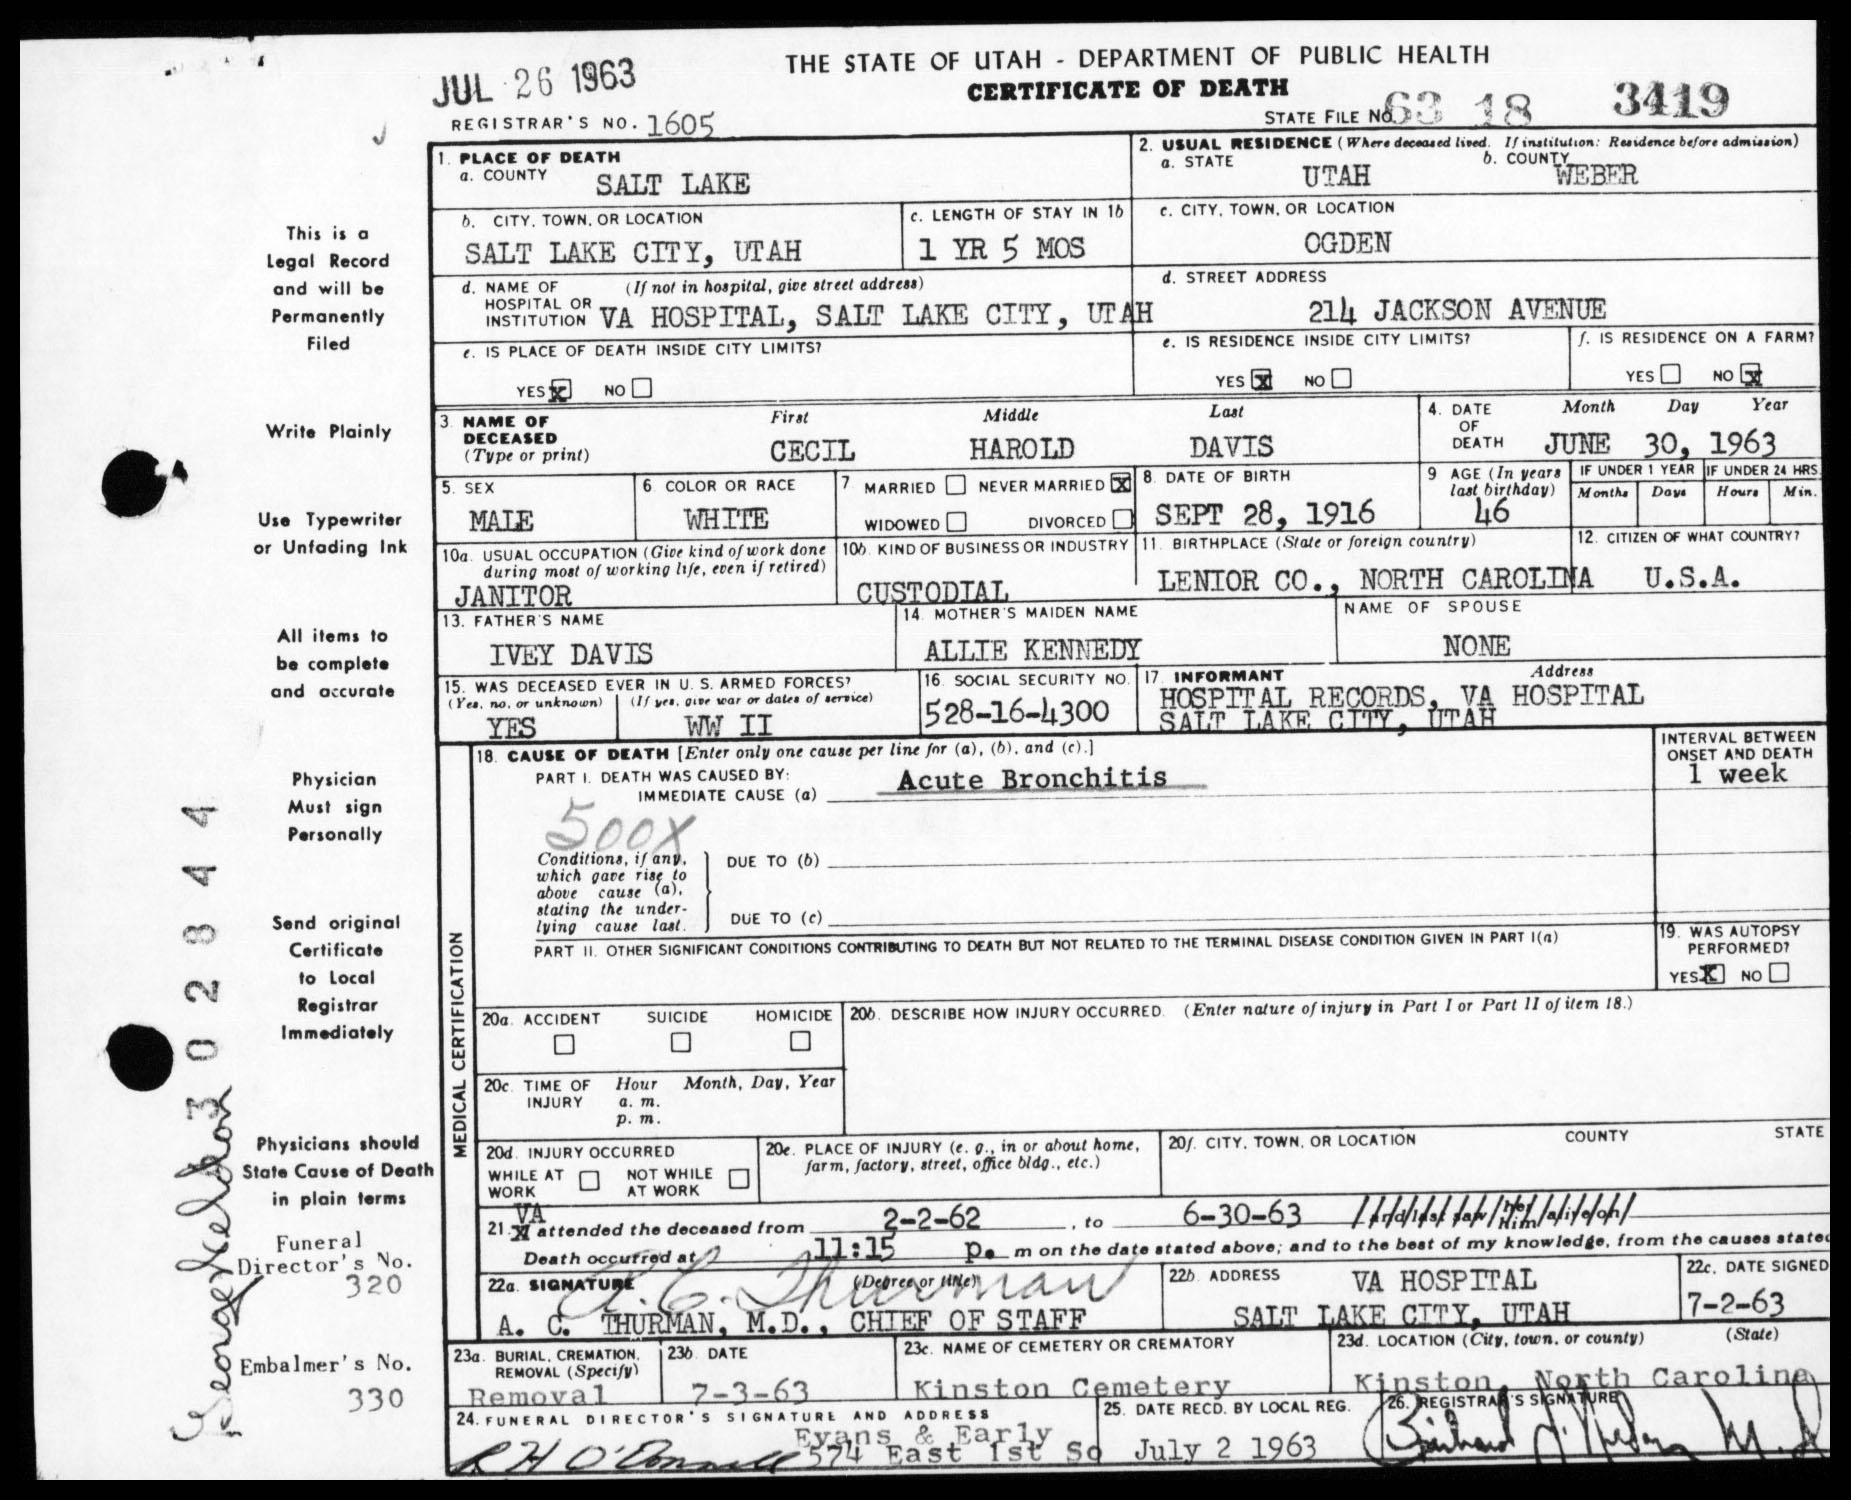 THE STATE OF UTAH - DEPARTMENT OF PUBLIC HEALTH
JUL 26 1963
CERTIFICATE OF DEATH
REGISTRAR'S NO. 1605
STATE FILE NO. 63 18 3419
1. PLACE OF DEATH
a. COUNTY SALT LAKE
2. USUAL RESIDENCE (Where deceased lived. If institution: Residence before admission)
a. STATE UTAH b. COUNTY WEBER
b. CITY, TOWN, OR LOCATION
SALT LAKE CITY, UTAH
c. LENGTH OF STAY IN 1b
1 YR 5 MOS
c. CITY, TOWN, OR LOCATION
OGDEN
d. NAME OF (If not in hospital, give street address)
HOSPITAL OR
INSTITUTION VA HOSPITAL, SALT LAKE CITY, UTAH
d. STREET ADDRESS
214 JACKSON AVENUE
e. IS PLACE OF DEATH INSIDE CITY LIMITS?
YES X NO
e. IS RESIDENCE INSIDE CITY LIMITS?
YES X NO
f. IS RESIDENCE ON A FARM?
YES NO X
3. NAME OF DECEASED (Type or print)
First Middle Last
CECIL HAROLD DAVIS
4. DATE OF DEATH
Month Day Year
JUNE 30, 1963
5. SEX
MALE
6. COLOR OR RACE
WHITE
7. MARRIED NEVER MARRIED X
WIDOWED DIVORCED
8. DATE OF BIRTH
SEPT 28, 1916
9 AGE (In years last birthday)
46
IF UNDER 1 YEAR
Months Days
IF UNDER 24 HRS.
Hours Min.
10a. USUAL OCCUPATION (Give kind of work done
during most of working life, even if retired)
JANITOR
10b. KIND OF BUSINESS OR INDUSTRY
CUSTODIAL
11. BIRTHPLACE (State or foreign country)
LENIOR CO., NORTH CAROLINA
12. CITIZEN OF WHAT COUNTRY?
U.S.A.
13. FATHER'S NAME
IVEY DAVIS
14. MOTHER'S MAIDEN NAME
ALLIE KENNEDY
NAME OF SPOUSE
NONE
15. WAS DECEASED EVER IN U. S. ARMED FORCES?
(Yes, no, or unknown) (If yes, give war or dates of service)
YES WW II
16. SOCIAL SECURITY NO.
528-16-4300
17. INFORMANT Address
HOSPITAL RECORDS, VA HOSPITAL
SALT LAKE CITY, UTAH
MEDICAL CERTIFICATION
18. CAUSE OF DEATH [Enter only one cause per line for (a), (b), and (c).]
PART I. DEATH WAS CAUSED BY:
IMMEDIATE CAUSE (a) Acute Bronchitis
INTERVAL BETWEEN
ONSET AND DEATH
1 week
500X
Conditions, if any,
which gave rise to
above cause (a),
stating the under-
lying cause last.
DUE TO (b)
DUE TO (c)
PART II. OTHER SIGNIFICANT CONDITIONS CONTRIBUTING TO DEATH BUT NOT RELATED TO THE TERMINAL DISEASE CONDITION GIVEN IN PART I(a)
19. WAS AUTOPSY
PERFORMED?
YES X NO
20a. ACCIDENT SUICIDE HOMICIDE
20b. DESCRIBE HOW INJURY OCCURRED. (Enter nature of injury in Part I or Part II of item 18.)
20c. TIME OF INJURY
Hour Month, Day, Year
a. m.
p. m.
20d. INJURY OCCURRED
WHILE AT WORK NOT WHILE AT WORK
20e. PLACE OF INJURY (e. g., in or about home,
farm, factory, street, office bldg., etc.)
20f. CITY, TOWN, OR LOCATION COUNTY STATE
VA
21. X attended the deceased from 2-2-62, to 6-30-63 and last saw her him alive on
Death occurred at 11:15 p. m on the date stated above; and to the best of my knowledge, from the causes stated
22a. SIGNATURE (Degree or title)
A. C. Thurman
A. C. THURMAN, M.D., CHIEF OF STAFF
22b. ADDRESS VA HOSPITAL
SALT LAKE CITY, UTAH
22c. DATE SIGNED
7-2-63
23a. BURIAL, CREMATION,
REMOVAL (Specify)
Removal
23b. DATE
7-3-63
23c. NAME OF CEMETERY OR CREMATORY
Kinston Cemetery
23d. LOCATION (City, town, or county) (State)
Kinston, North Carolina
24. FUNERAL DIRECTOR'S SIGNATURE AND ADDRESS
Evans & Early
R H O'Donnell 574 East 1st So
25. DATE RECD. BY LOCAL REG.
July 2 1963
26. REGISTRAR'S SIGNATURE
This is a
Legal Record
and will be
Permanently
Filed
Write Plainly
Use Typewriter
or Unfading Ink
All items to
be complete
and accurate
Physician
Must sign
Personally
Send original
Certificate
to Local
Registrar
Immediately
Physicians should
State Cause of Death
in plain terms
Funeral
Director's No.
320
Embalmer's No.
330
302844